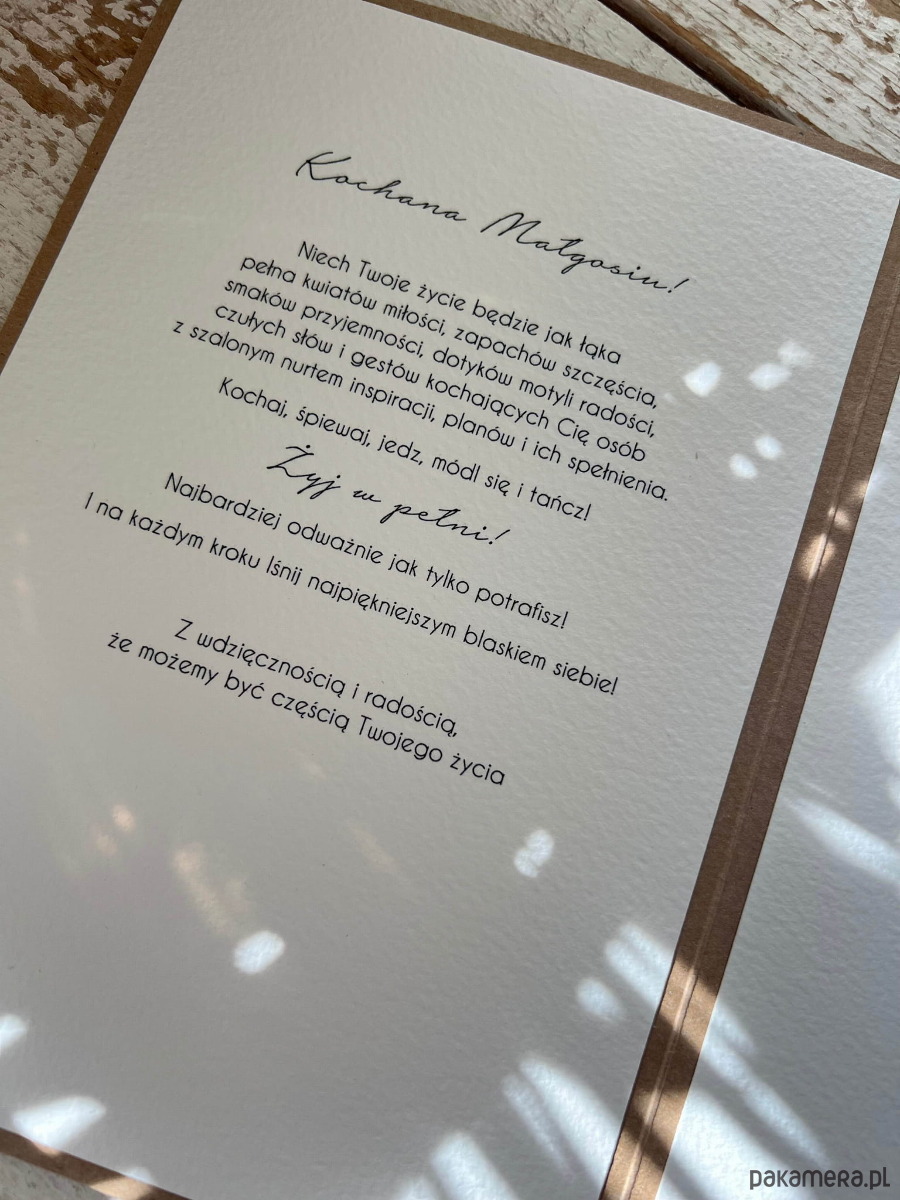 Kochana Małgosiu!
Niech Twoje życie będzie jak łąka
pełna kwiatów miłości, zapachów szczęścia,
smaków przyjemności, dotyków motyli radości,
czułych słów i gestów kochających Cię osób
z szalonym nurtem inspiracji, planów i ich spełnienia.
Kochaj, śpiewaj, jedz, módl się i tańcz!
Żyj w pełni!
Najbardziej odważnie jak tylko potrafisz!
I na każdym kroku lśnij najpiękniejszym blaskiem siebie!
Z wdzięcznością i radością,
że możemy być częścią Twojego życia
pakamera.pl